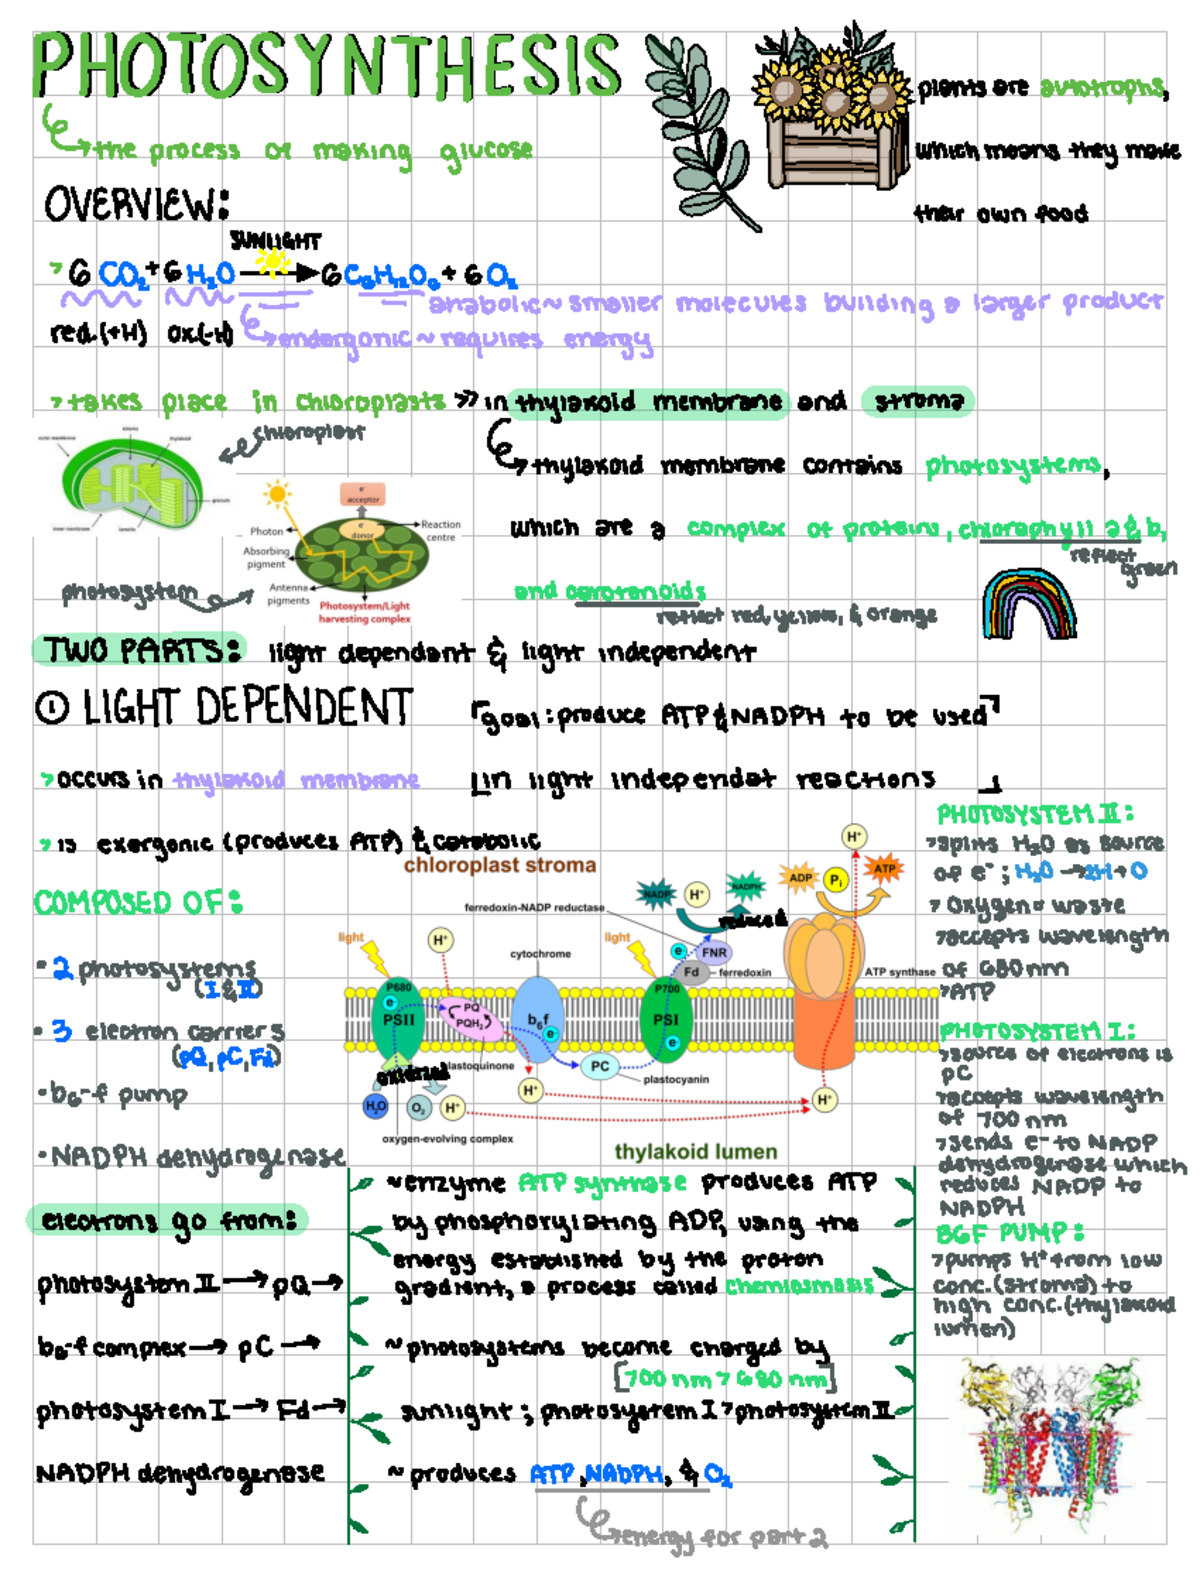 PHOTOSYNTHESIS
↪the process of making glucose
plants are autotrophs,
which means they make
their own food
OVERVIEW:
SUNLIGHT
> 6 CO₂ + 6 H₂O → 6 C₆H₁₂O₆ + 6 O₂
anabolic ~ smaller molecules building a larger product
red.(+H) ox.(-H) ↪endergonic ~ requires energy
> takes place in chloroplasts >> in thylakoid membrane and stroma
chloroplast
outer membrane
stroma
thylakoid
granum
inner membrane
lamella
↪thylakoid membrane contains photosystems,
which are a complex of proteins, chloraphyll a & b,
reflect green
and carotenoids
reflect red, yellow, & orange
e⁻ acceptor
Photon
e⁻ donor
Reaction centre
Absorbing pigment
Antenna pigments
Photosystem/Light harvesting complex
photosystem
TWO PARTS: light dependant & light independent
① LIGHT DEPENDENT
goal: produce ATP & NADPH to be used
in light independat reactions
> occurs in thylakoid membrane
> is exergonic (produces ATP) & catabolic
COMPOSED OF:
• 2 photosystems
(I & II)
• 3 electron carriers
(pQ, pC, Fd)
• b₆-f pump
• NADPH dehydrogenase
chloroplast stroma
ferredoxin-NADP reductase
NADP
H⁺
NADPH
reduced
ADP
Pi
ATP
H⁺
light
H⁺
cytochrome
light
e⁻
FNR
Fd
ferredoxin
ATP synthase
P680
e⁻
PSII
PQ
PQH₂
b₆f
e⁻
P700
PSI
e⁻
oxidized
plastoquinone
PC
plastocyanin
H₂O
O₂
H⁺
H⁺
H⁺
oxygen-evolving complex
thylakoid lumen
PHOTOSYSTEM II:
>splits H₂O as source
of e⁻; H₂O → 2H + O
> Oxygen a waste
>accepts wavelength
of 680 nm
>ATP
PHOTOSYSTEM I:
>source of electrons is
pC
>accepts wavelength
of 700 nm
>sends e⁻ to NADP
dehydrogenase which
reduces NADP to
NADPH
B6F PUMP:
>pumps H⁺ from low
conc.(stroma) to
high conc.(thylakoid
lumen)
electrons go from:
photosystem II → pQ →
b₆-f complex → pC →
photosystem I → Fd →
NADPH dehydrogenase
~enzyme ATP synthase produces ATP
by phosphorylating ADP, using the
energy established by the proton
gradient, a process called chemiosmosis
~photosystems become charged by
[700 nm > 680 nm]
sunlight ; photosystem I > photosystem II
~ produces ATP, NADPH, & O₂
↪energy for part 2